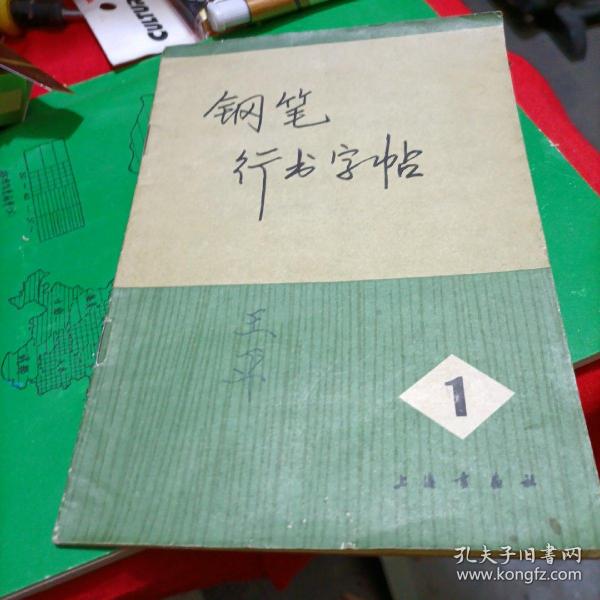 钢笔
行书字帖
王
1
上海书画社
孔夫子旧書网
www.kongfz.com